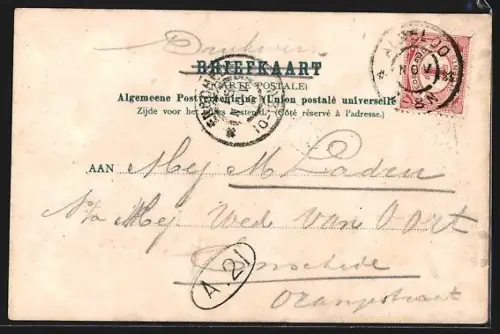 Drukwerk
BRIEFKAART
(CARTE POSTALE)
Algemeene Postvereeniging (Union postale universelle)
Zijde voor het adres bestemd. (Côté réservé à l'adresse.)
ALMELO
NOV
8-N
AAN Mej M. Laden
p/a Mej. Wed van Oort
Enschede
Oranjestraat
A.21